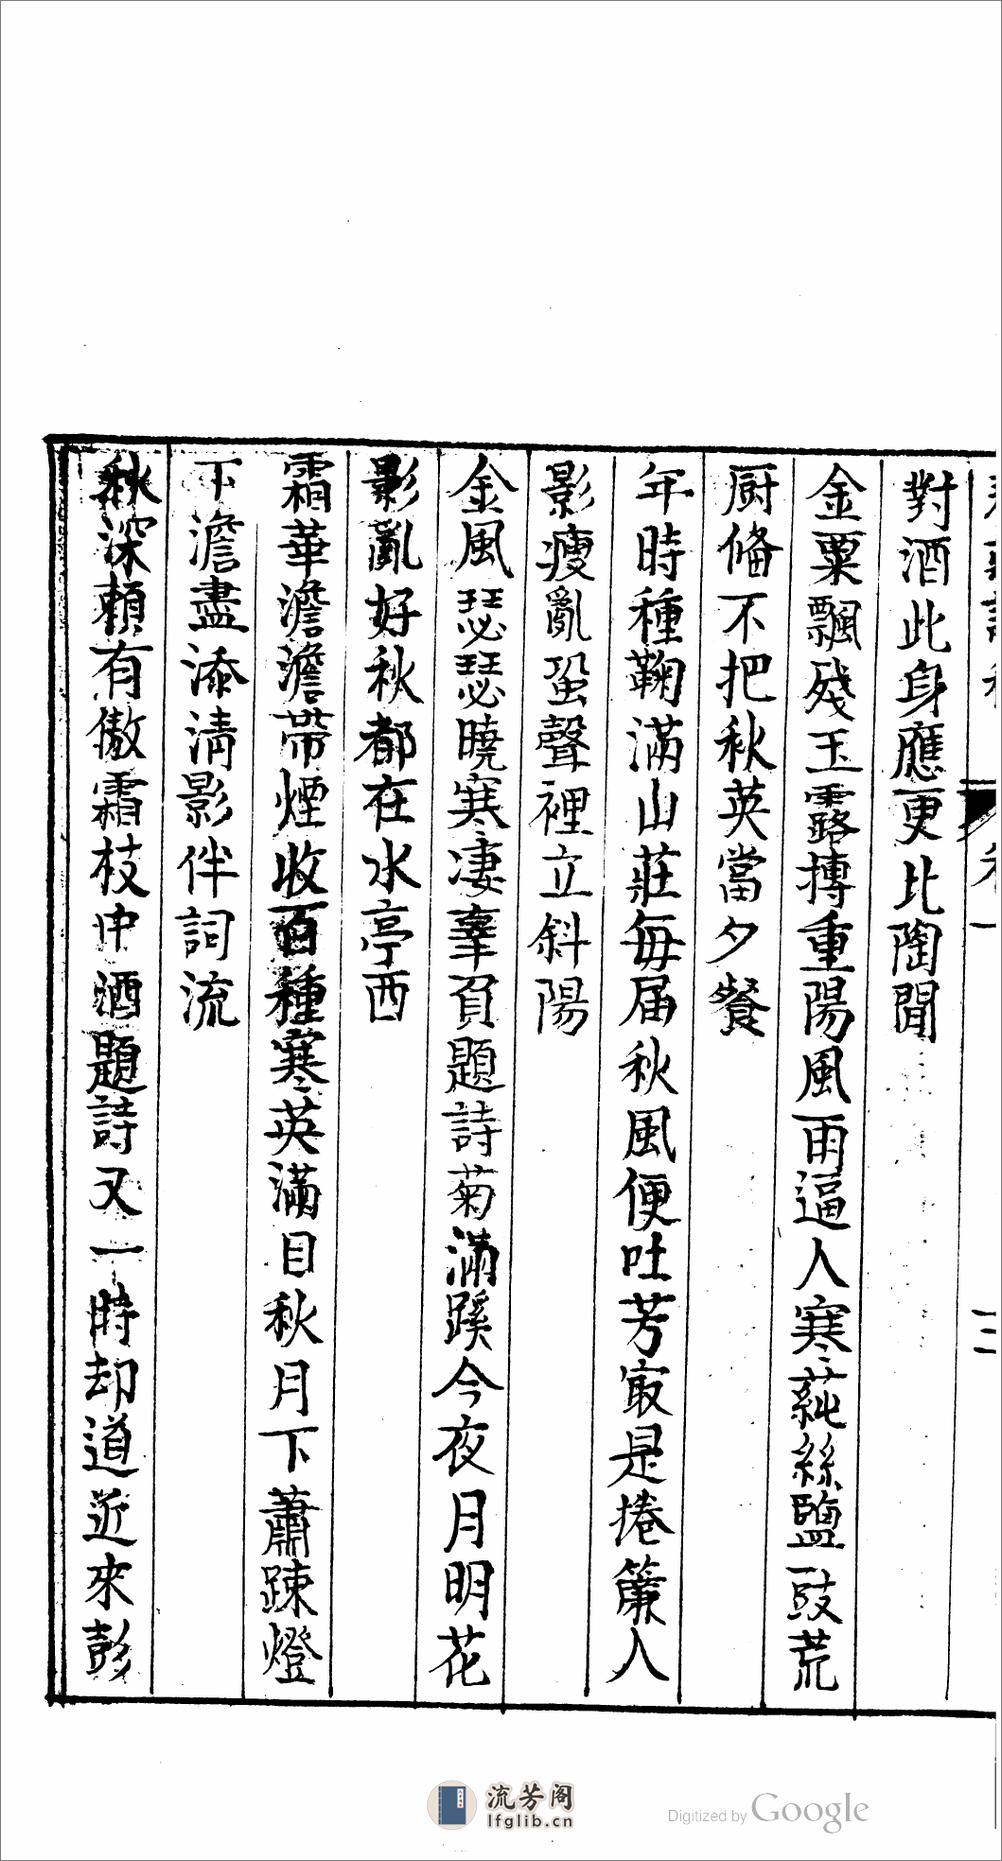 卷一
二
對酒此身應更比陶閒
金粟飄殘玉露摶重陽風雨逼人寒蒓絲鹽豉荒
厨俻不把秋英當夕餐
年時種鞠滿山莊每届秋風便吐芳㝡是捲簾人
影瘦亂蛩聲裡立斜陽
金風瑟瑟曉寒凄辜負題詩菊滿蹊今夜月明花
影亂好秋都在水亭西
霜華澹澹帶煙收百種寒英滿目秋月下蕭踈燈
下澹盡添清影伴詞流
秋深頼有傲霜枝中酒題詩又一時却道近來彭
流芳阁
lfglib.cn
Digitized by Google